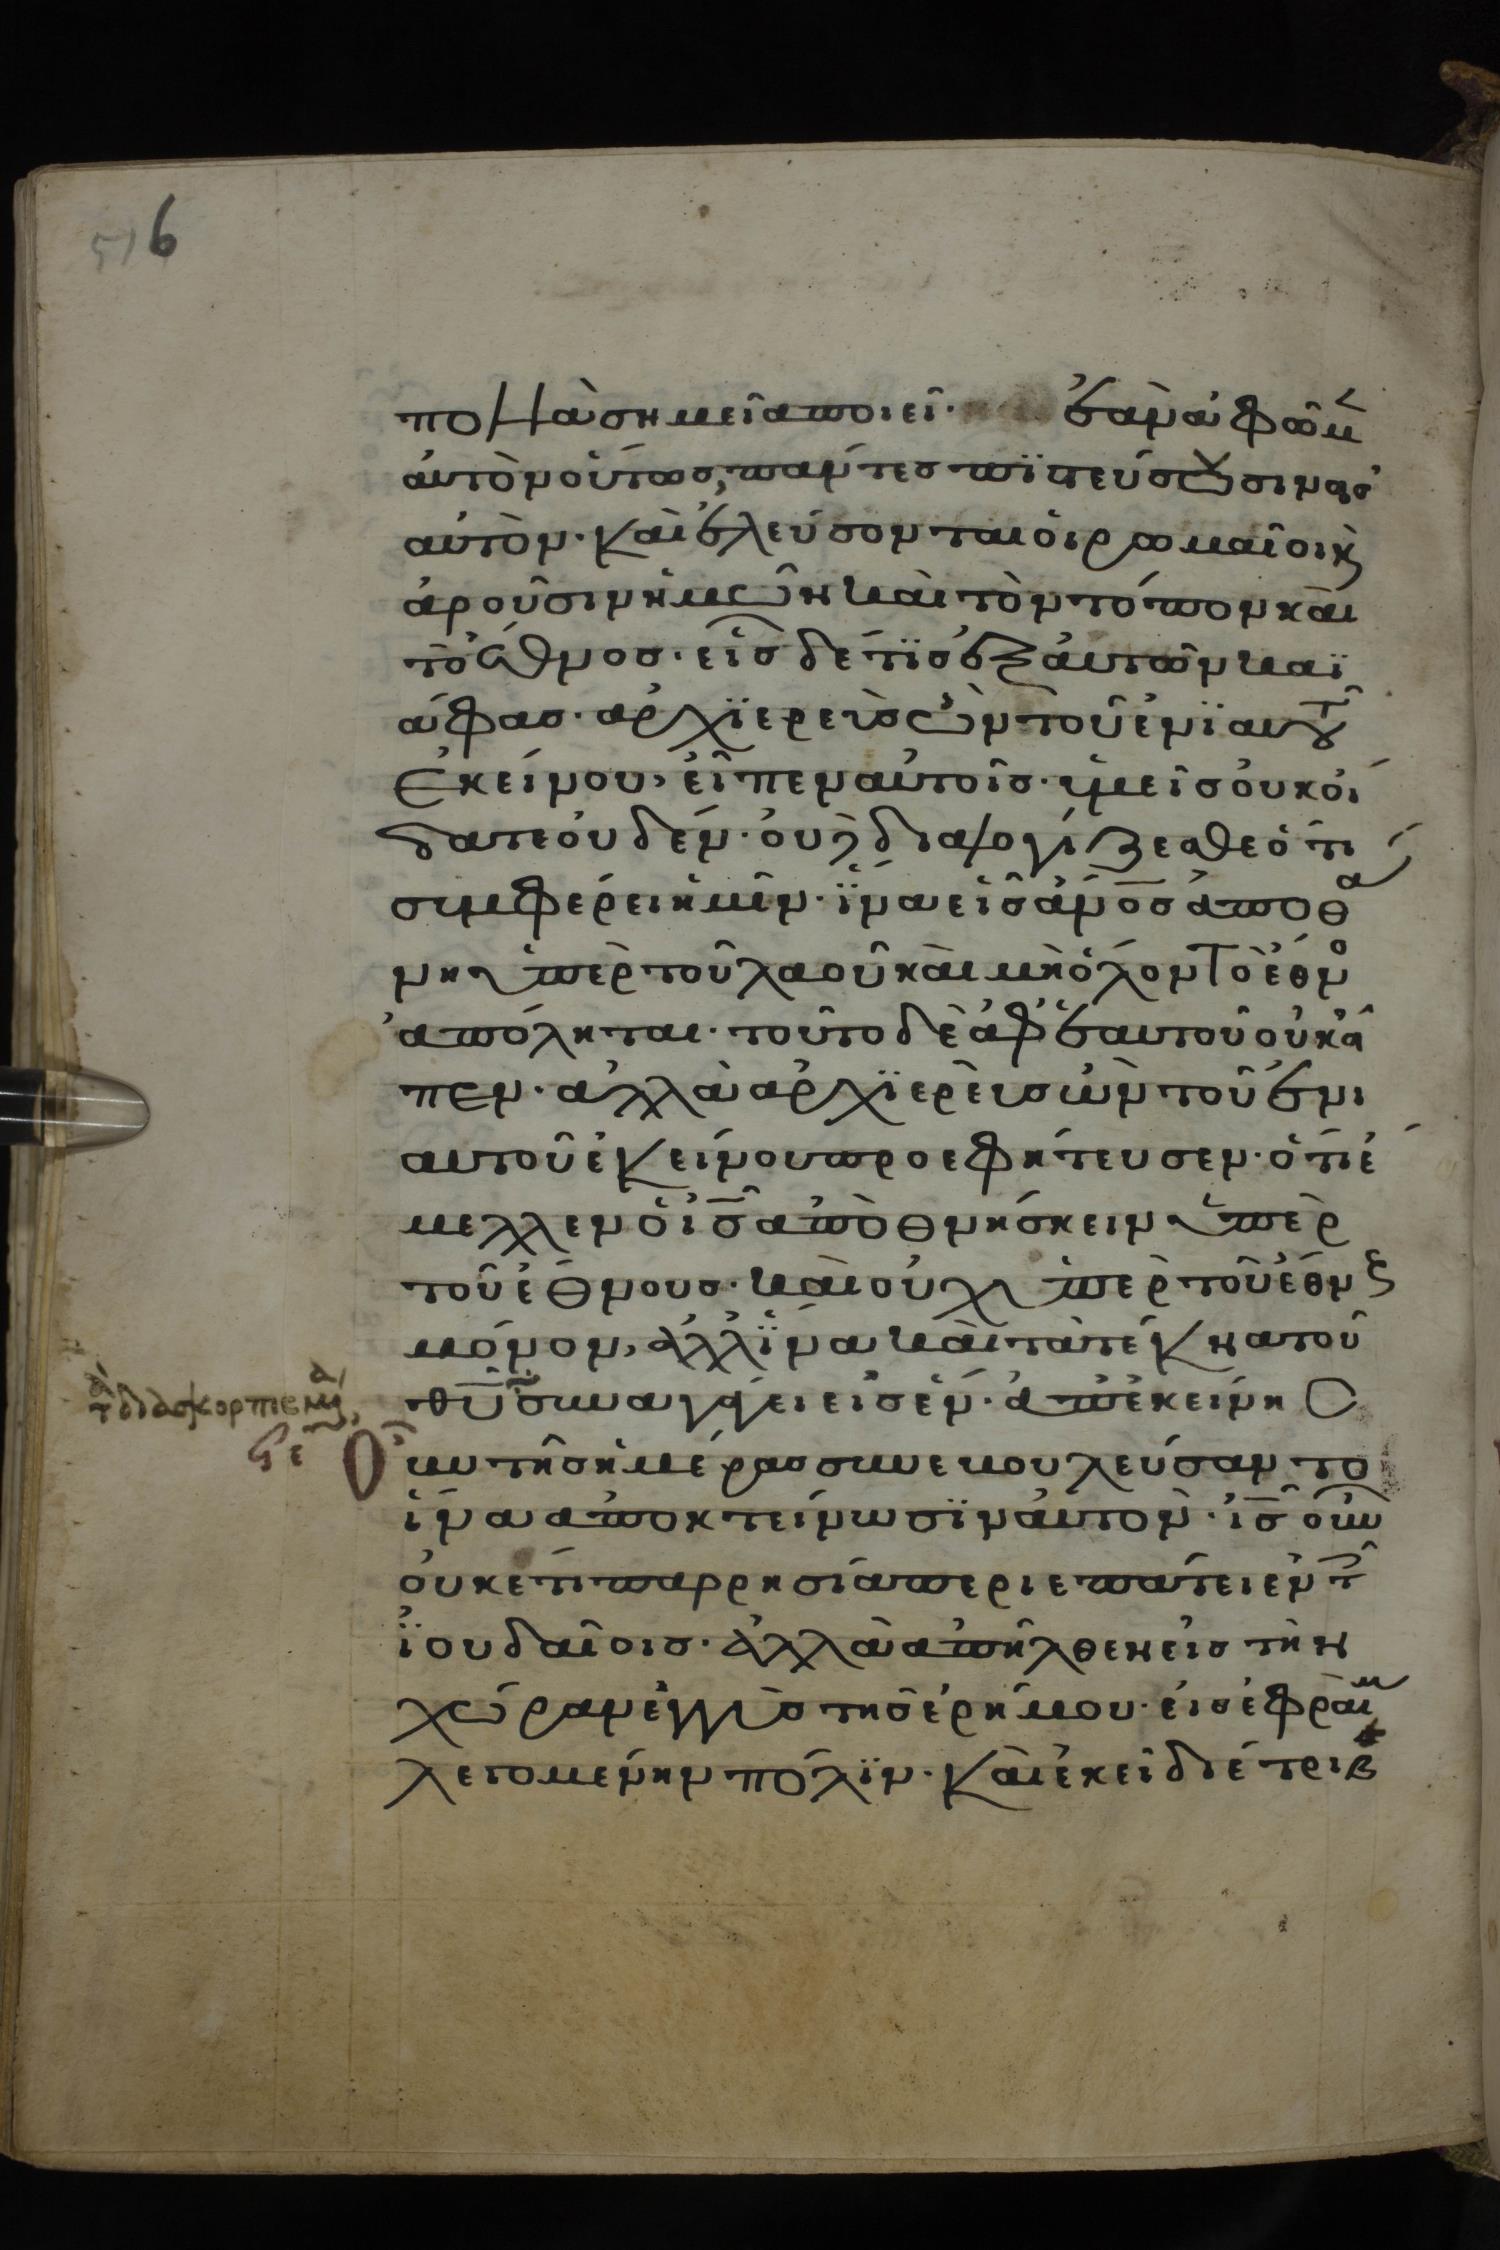 516
πολλὰ σημεῖα ποιεῖ· ἐὰν ἀφῶμ
αὐτὸν οὕτως, πάντες πϊστεύσουσιν εἰσ
αὐτόν· καὶ ἐλεύσονται ὁι ρωμαῖοι κ̀
ἀροῦσιν ἡμῶν καὶ τὸν τόπον καὶ
τὸ ἔθνος· εἷς δέ τϊς ἐξ αὐτῶν καϊ
άφας· ἀρχϊερεὺς ὢν τοῦ ἐνϊαυτοῦ
ἐκείνου, εἶπεν αὐτοῖς· ὑμεῖς ὀυκ ὀί
δατε ὀυδέν· ὀυδὲ διαλογίζεσθε ὅτι
συμφέρει ἡμῖν· ἵ̈να εἷς ἄνο̅ς ἀποθά
νη ὑπὲρ τοῦ λαοῦ καὶ μὴ ὅλον τὸ ἔθνο
ἀπόληται· τοῦτο δὲ ἀφ' ἑαυτοῦ οὐκ εἶ
πεν· ἀλλὰ ἀρχϊερὲυς ὢν τοῦ ἐνι
αυτοῦ ἐκείνου προεφήτευσεν· ὅτι ἔ
μελλεν ὁ ι̅ς̅ ἀποθνήσκειν ὑπὲρ
τοῦ ἔθνους· καὶ οὐχ ὑπὲρ τοῦ ἔθνς
μόνον, ἀλλ' ἵ̈να καὶ τὰ τέκνα τοῦ
θ̅υ̅ συναγάγει εἰς ἕν· ἀπ' ἐκείνης
τὰ διασκορπισμένα
Οὖν τῆς ἡμέρας συνεβουλεύσαντο
ἵνα ἀποκτείνωσϊν ἀυτόν· ι̅ς̅ οὖν
ὀυκέτι παρρησία περιεπάτει ἐν τ
ἰ̈ουδαίοις· ἀλλὰ ἀπῆλθεν εἰς τὴν
χώραν ἐγγὺς τῆς ἐρήμου· εἰς ἐφραὶμ
λεγομένην πόλϊν· κὰι ἐκεῖ διέτριβ